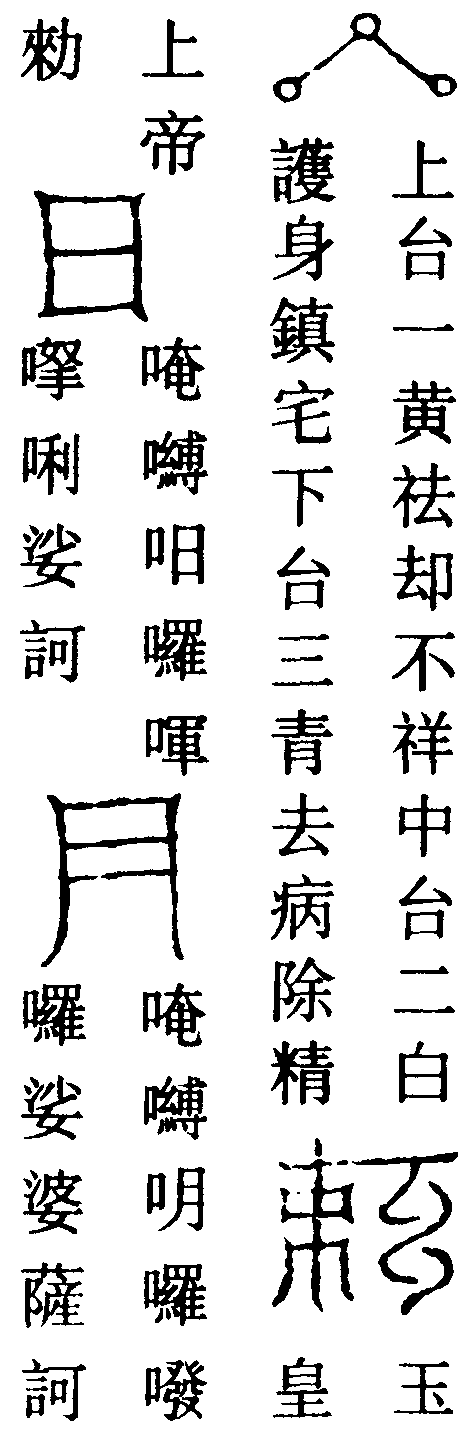 上台一黄祛却不祥中台二白
護身鎮宅下台三青去病除精
玉
皇
上帝
勑
日
唵嚩囉喗
唎娑訶
唵嚩囉
囉娑婆薩訶